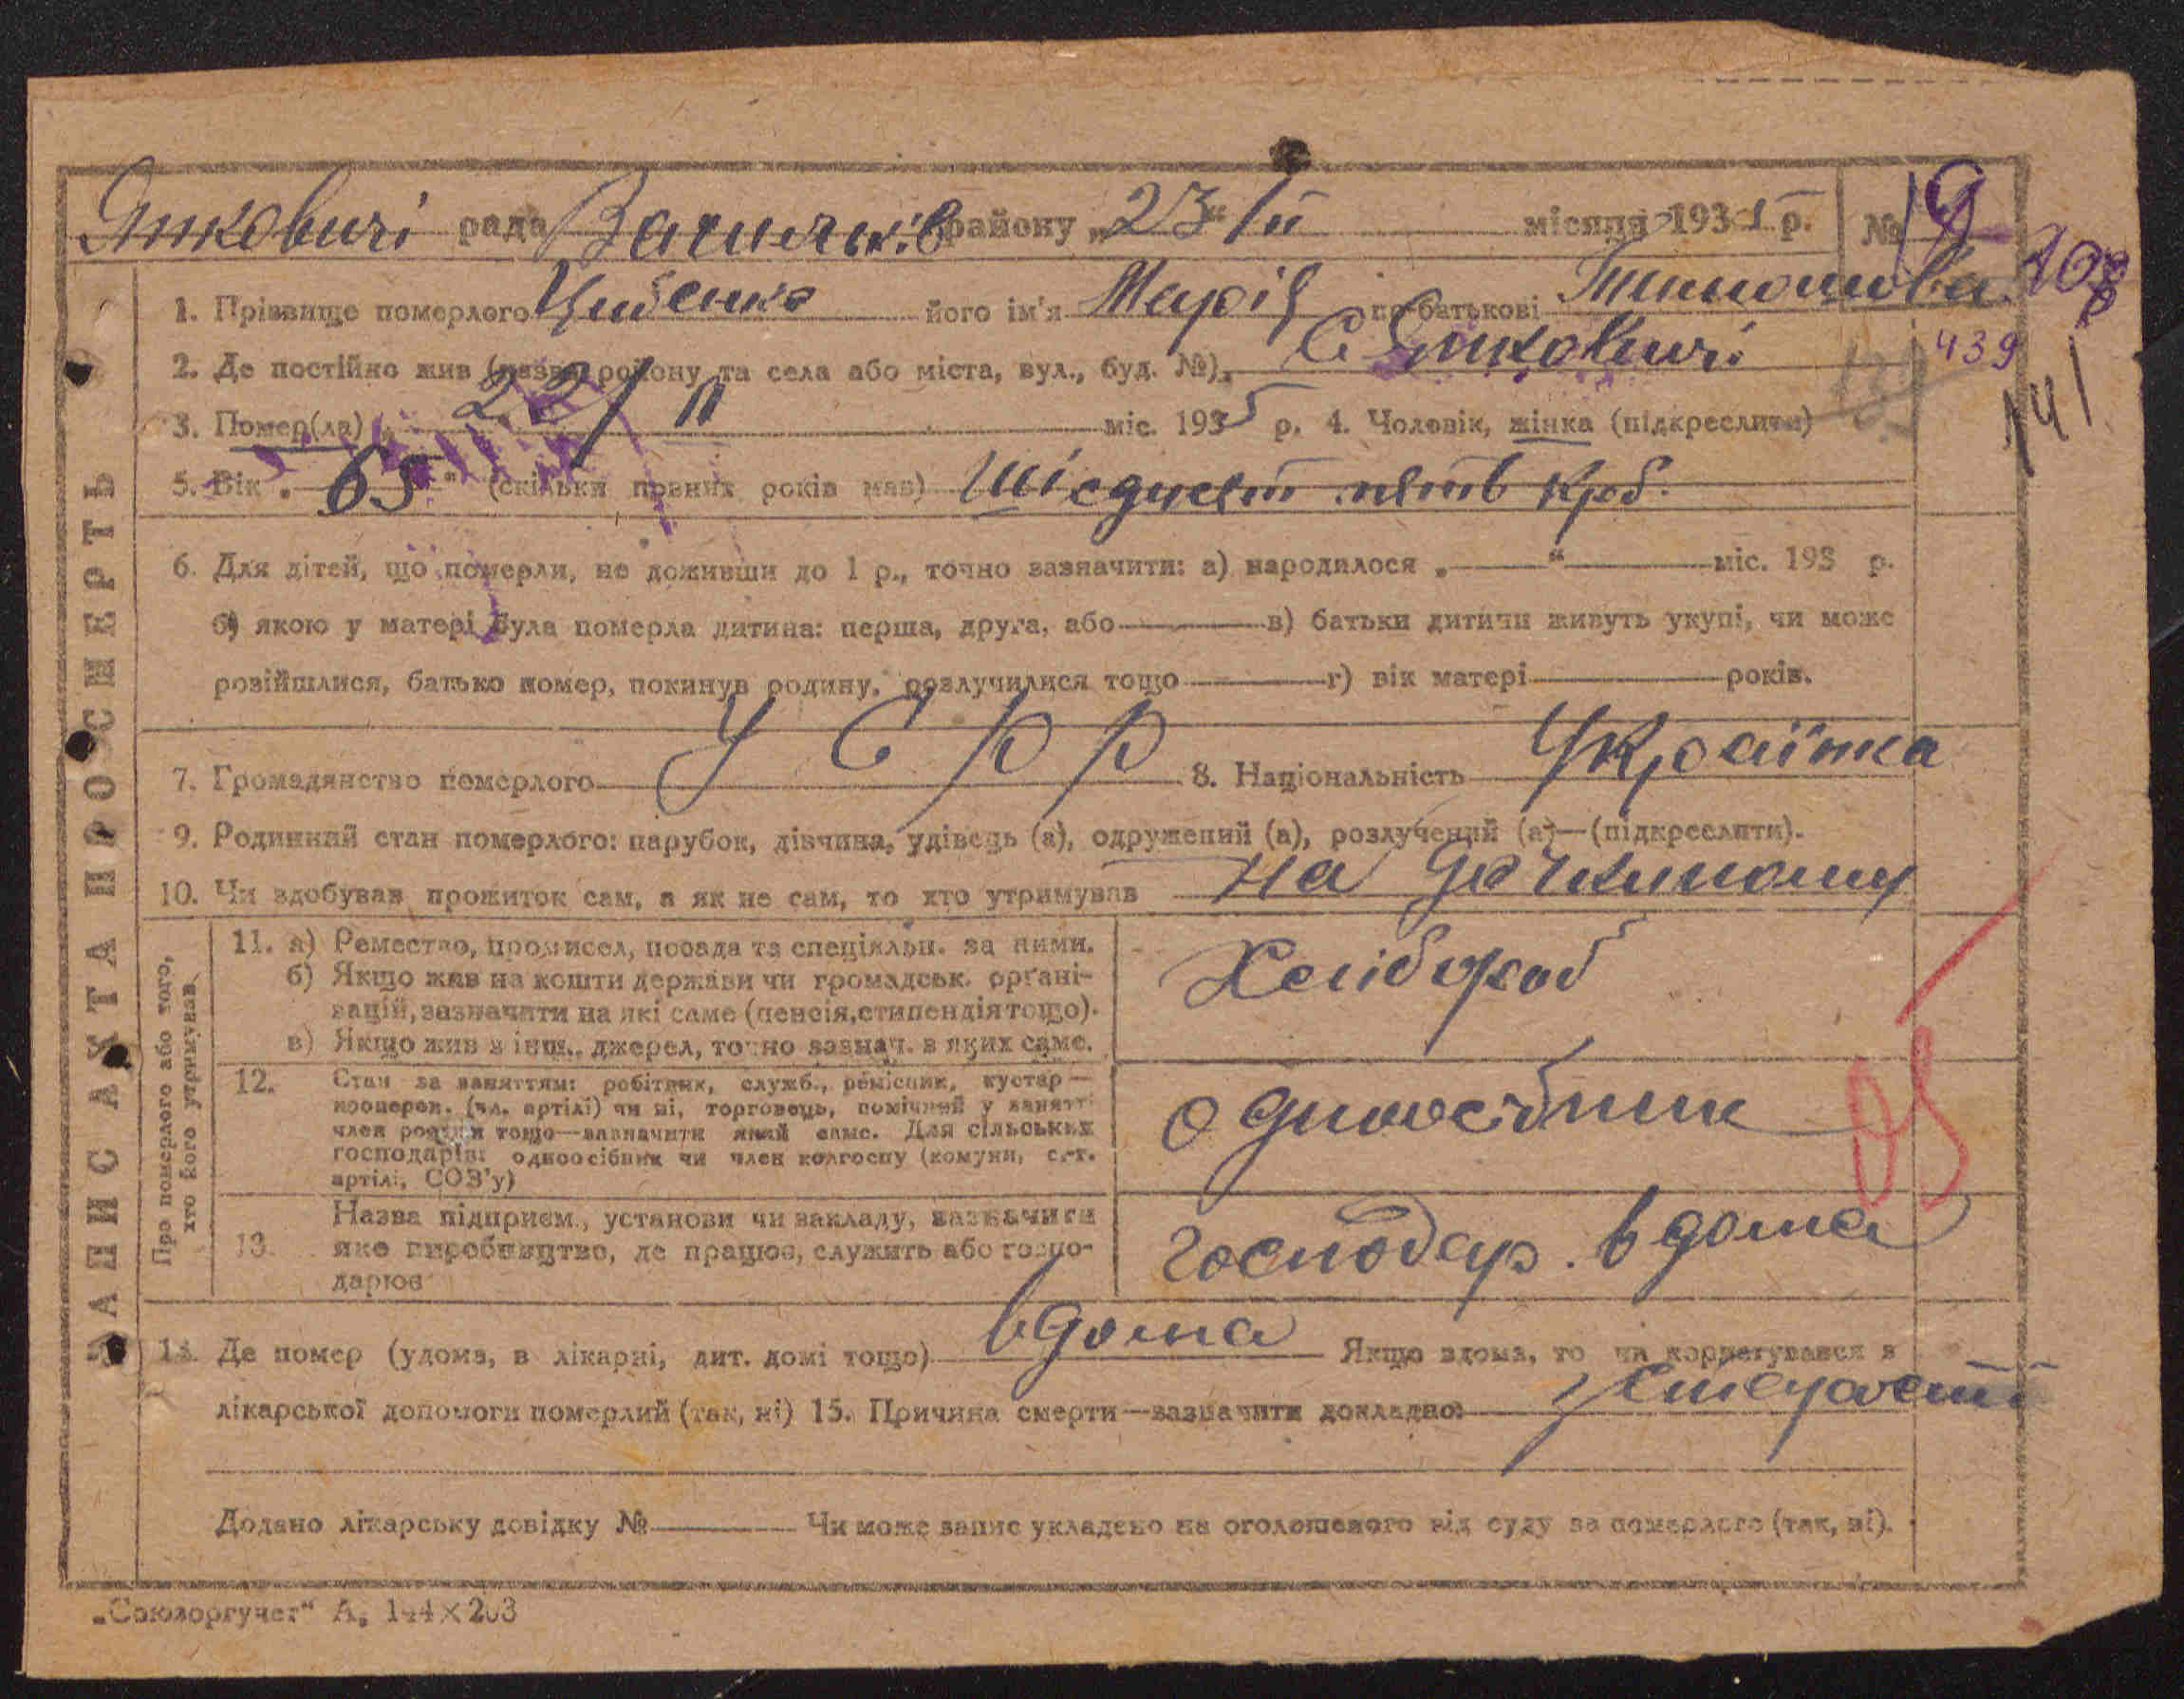 Янковичі рада Васильків району „23“ ІІ місяця 1935 р. № 19
1. Прізвище померлого Цибенко його ім'я Марія по батькові
2. Де постійно жив (назва району та села або міста, вул., буд. №) С Янковичі
439
3. Помер(ла) 22/ІІ міс. 1935 р. 4. Чоловік, жінка (підкреслити)
141
5. Вік „65“ (скільки повних років мав) Шісдцят пять
6. Для дітей, що померли, не доживши до 1 р., точно зазначити: а) народилося „ “ міс. 193 р.
б) якою у матері була померла дитина: перша, друга, або в) батьки дитини живуть укупі, чи може
розійшлися, батько помер, покинув родину, розлучилися тощо г) вік матері років.
7. Громадянство померлого УСРР 8. Національність Українка
9. Родинний стан померлого: парубок, дівчина, удівець (а), одружений (а), розлучений (а)—(підкреслити).
10. Чи здобував прожиток сам, а як не сам, то хто утримував на
ЗАПИС АКТА ПРО СМЕРТЬ
Про померлого або того,
хто його утримував.
11. а) Ремество, промисел, посада та спеціяльн. за ними.
б) Якщо жив на кошти держави чи громадськ. організацій, зазначити на які саме (пенсія, стипендія тощо).
в) Якщо жив з інш. джерел, точно зазнач. з яких саме.
Хлібороб
12. Стан за заняттям: робітник, служб., ремісник, кустар—
кооперов. (чл. артілі) чи ні, торговець, помічний у занятті
член родини тощо—зазначити який саме. Для сільських
господарів: одноосібник чи член колгоспу (комуни, с.-г.
артілі, СОЗ'у)
одноосібник
05
13. Назва підприєм., установи чи закладу, зазначити
яке виробництво, де працює, служить або господарює
господар. вдома
14. Де помер (удома, в лікарні, дит. домі тощо) вдома Якщо вдома, то чи користувався з
лікарської допомоги померлий (так, ні) 15. Причина смерти—зазначити докладно:
Додано лікарську довідку № Чи може запис укладено на оголошеного від суду за померлого (так, ні).
„Союзоргучет“ А5 144×203